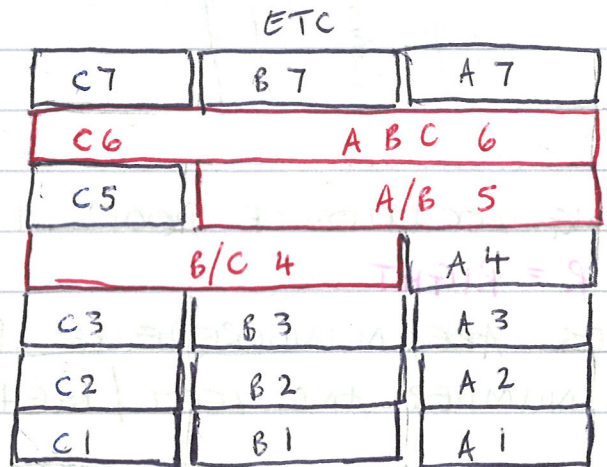 ETC
C7 B7 A7
C6 A B C 6
C5 A/B 5
B/C 4 A4
C3 B3 A3
C2 B2 A2
C1 B1 A1